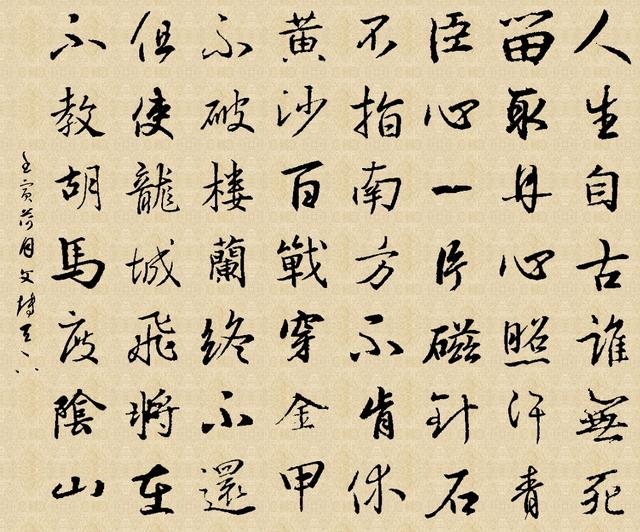 人生自古誰無死
留取丹心照汗青
臣心一片磁針石
不指南方不肯休
黄沙百戰穿金甲
不破楼蘭終不還
但使龍城飛將在
不教胡馬度陰山
壬寅荷月文博